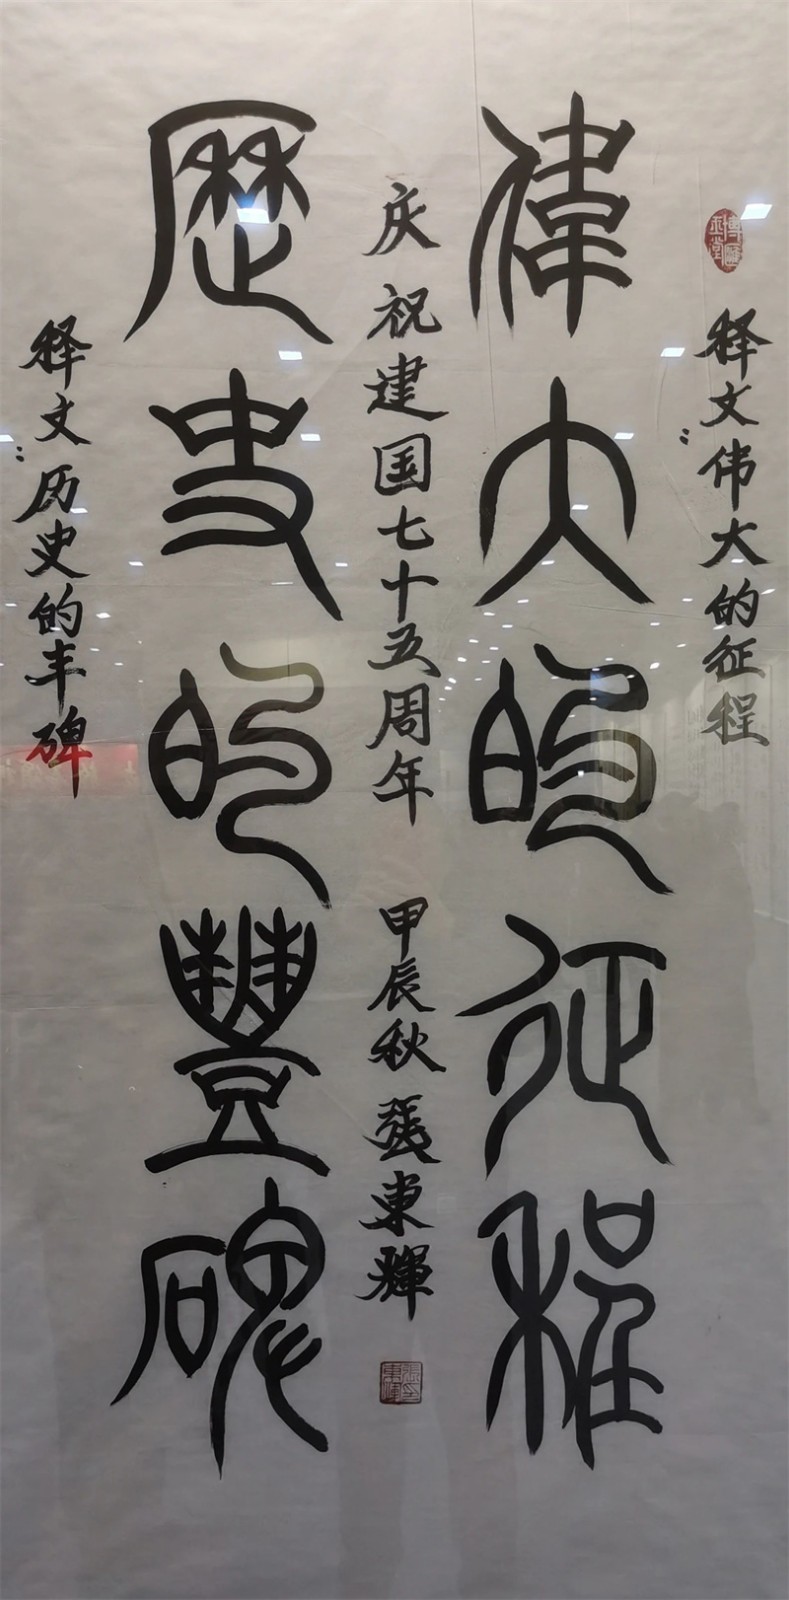 释文:伟大的征程
偉大的征程
庆祝建国七十五周年 甲辰秋 張東輝
歷史的豐碑
释文:历史的丰碑